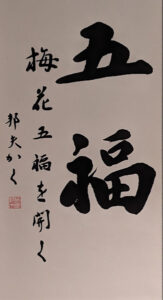 五福
梅花五福を開く
邦夫かく